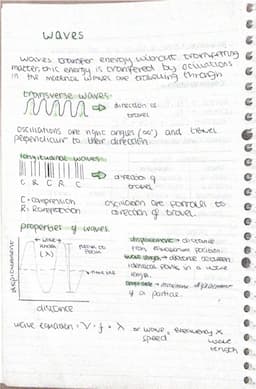 WAVES
waves transfer energy without transferring
matter, this energy is transfered by oscillations
in the material waves are travelling through
transverse waves:
direction of
travel
oscillations are right angles (90°) and travel
perpendicular to their direction
longitudinal waves:
direction of
travel
C R C R C
C: compression
R: Rarefaction
oscillation are parallel to
direction of travel.
properties of waves:
displacement → distance
from equilibrium position.
wave length → distance between
identical points in a wave
length.
amplitude → maximum displacement
of a particle.
displacement
wave
(λ)
peak
distance
wave equation: V = f × λ or wave = frequency ×
speed wave
length